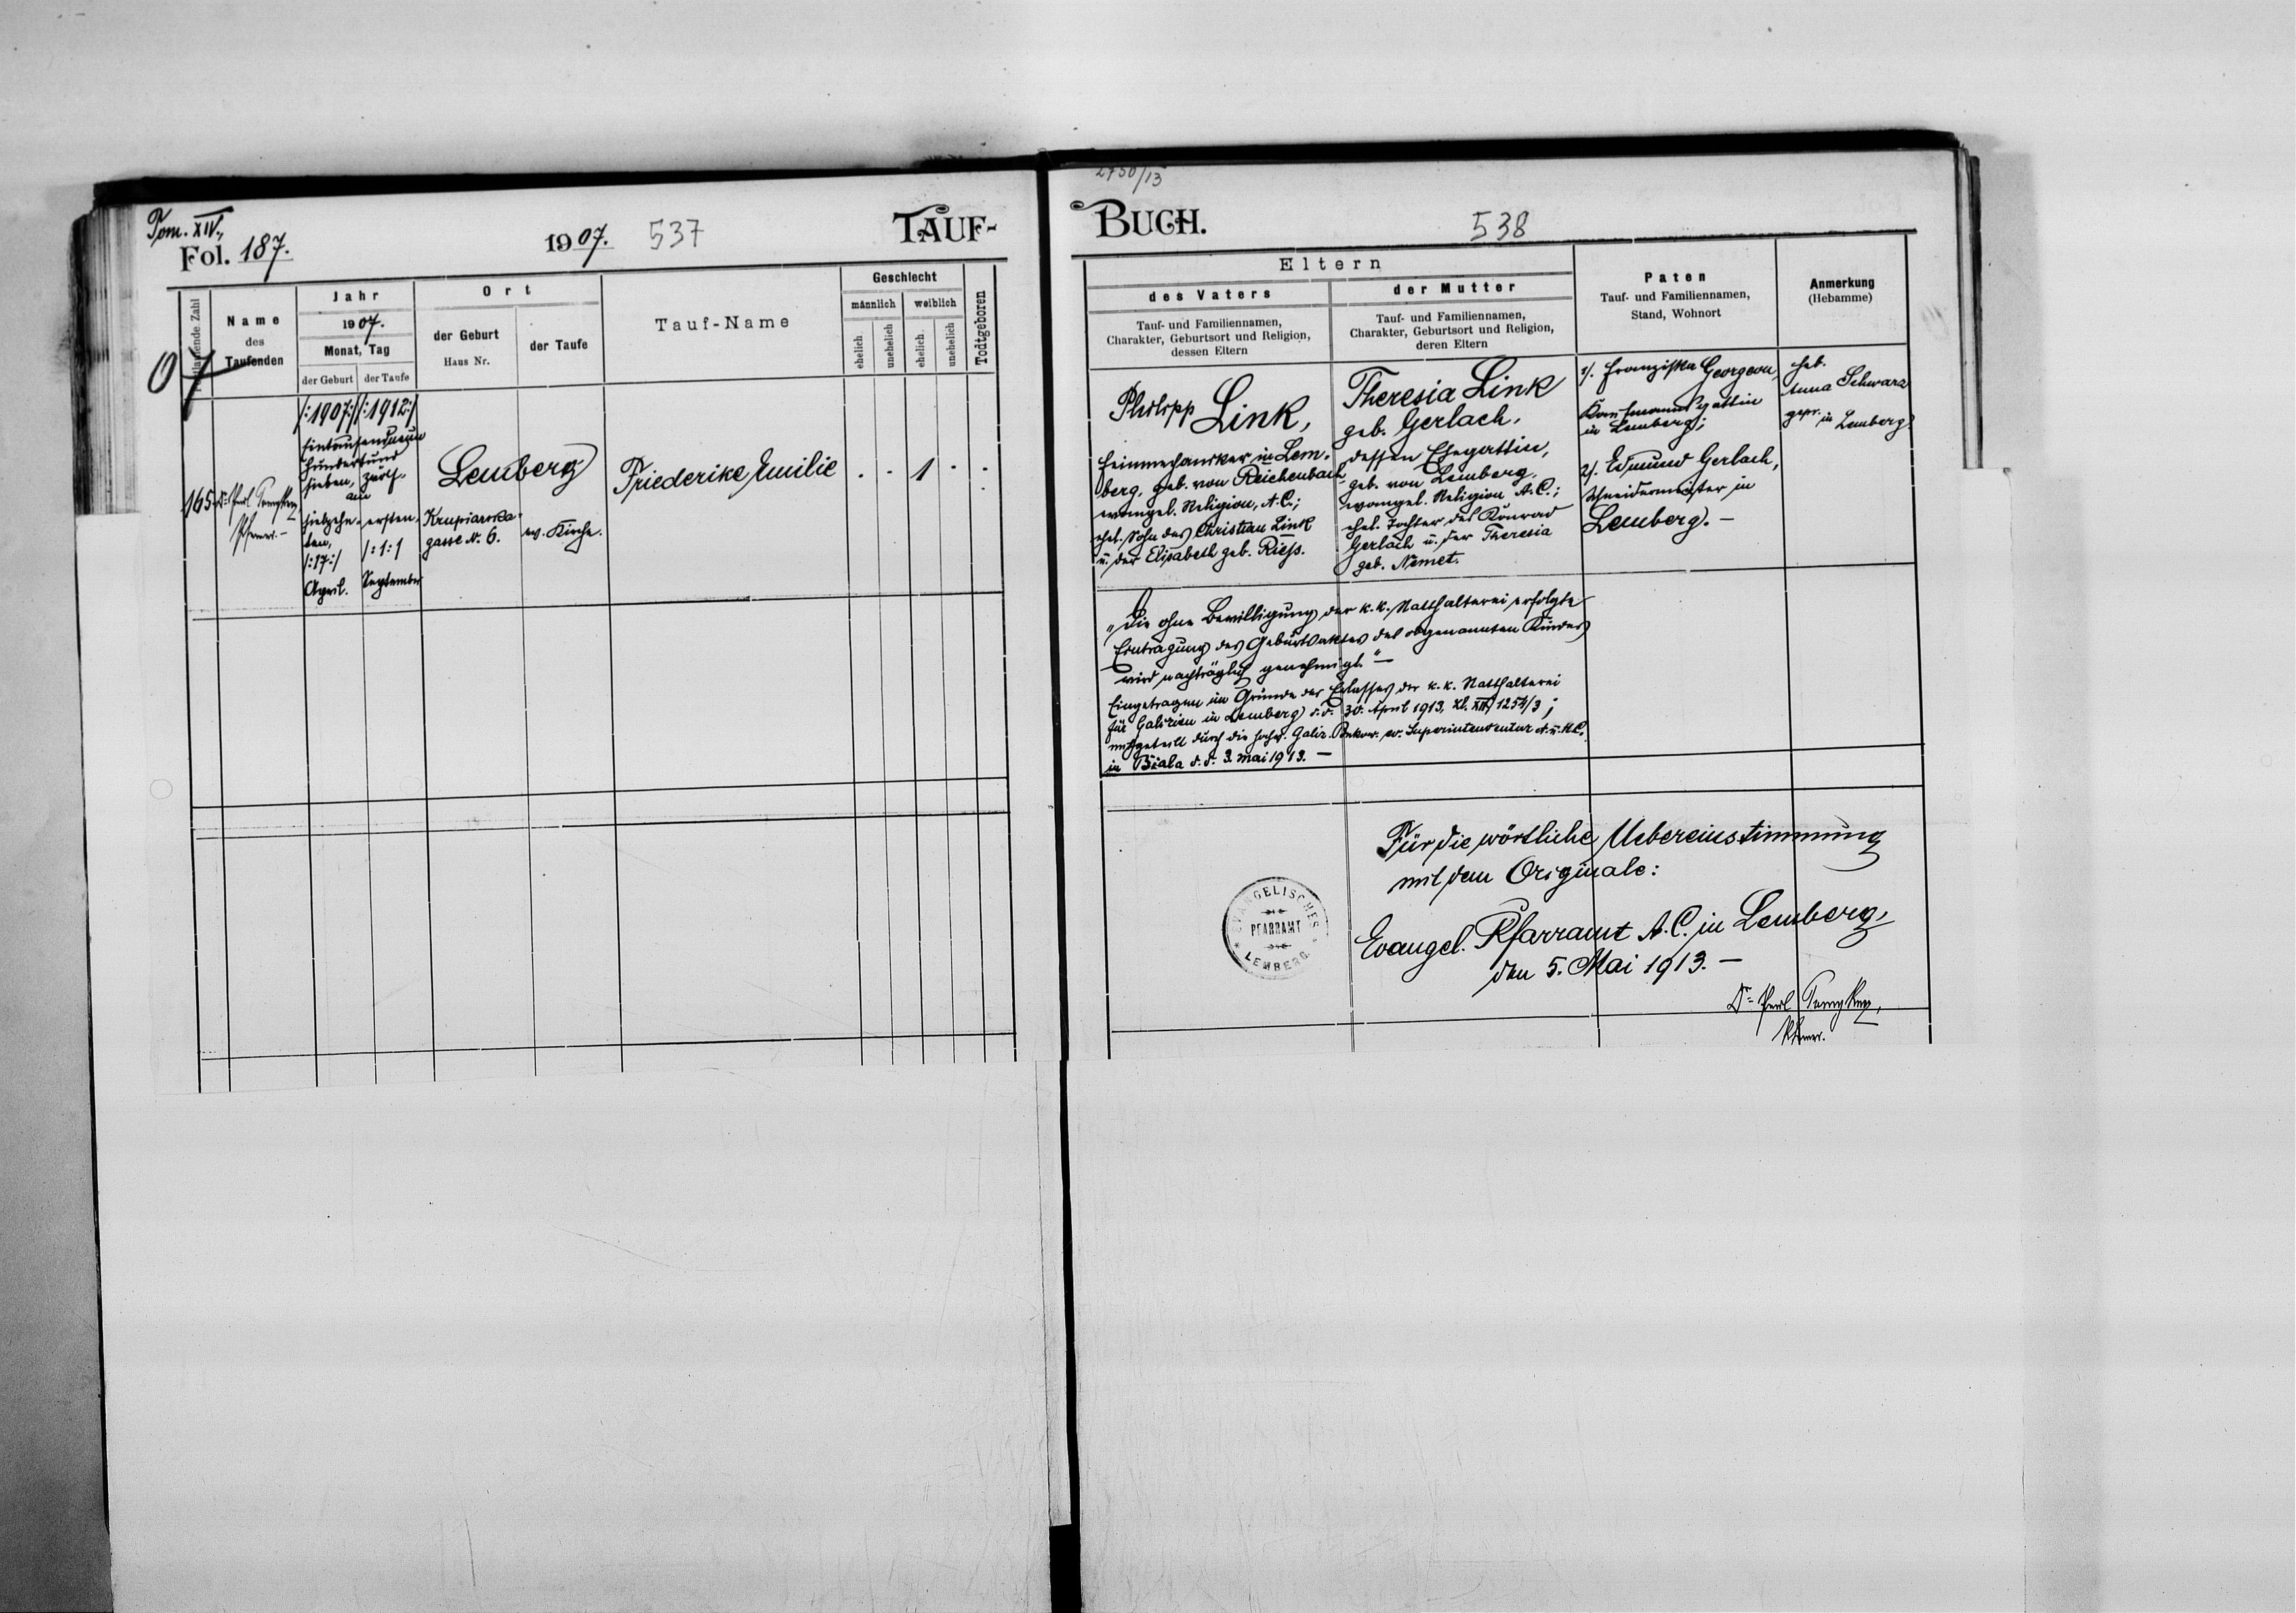 Tom. XIV.,
Fol. 187.
1907. 537
TAUF-
07
Fortlaufende Zahl
Name
des
Taufenden
Jahr
1907.
Monat, Tag
der Geburt
der Taufe
Ort
der Geburt
Haus Nr.
der Taufe
Tauf-Name
Geschlecht
männlich
weiblich
ehelich
unehelich
ehelich
unehelich
Todtgeboren
165
Pfarrer.-
/:1907:/ /:1912:/
Eintausendneun
hundertund
sieben, zwölf,
am
siebzehn- ersten,
ten,
/:17:/ /:1:/
April. September
Lemberg
Krupiarska-
gasse No. 6.
ev. Kirche.
Friederike Emilie
. . 1 . .
2750/13
BUCH.
538
Eltern
des Vaters
Tauf- und Familiennamen,
Charakter, Geburtsort und Religion,
dessen Eltern
der Mutter
Tauf- und Familiennamen,
Charakter, Geburtsort und Religion,
deren Eltern
Paten
Tauf- und Familiennamen,
Stand, Wohnort
Anmerkung
(Hebamme)
Philipp Link,
Feinmechaniker in Lem-
berg, geb. von Reichenbach,
evangel. Religion, A.C.;
ehel. Sohn des Christian Link
u. der Elisabeth geb. Riess.
Theresia Link
geb. Gerlach,
dessen Ehegattin,
geb. von Lemberg,
evangel. Religion A.C.;
ehel. Tochter des Konrad
Gerlach u. der Theresia
geb. Nemet.
1/. Franziska Georgeon,
Kaufmannsgattin
in Lemberg;
2/. Edmund Gerlach,
Schneidermeister in
Lemberg. -
Heb.
Anna Schwarz
gepr. in Lemberg
"Die ohne Bewilligung der k.k. Statthalterei erfolgte
Eintragung des Geburtsaktes des obgenannten Kindes
wird nachträglich genehmigt." -
Eingetragen im Grunde des Erlasses der k.k. Statthalterei
für Galizien in Lemberg d.d. 30. April 1913, Zl. XIII/ 1254/3;
mitgeteilt durch die hochw. Galiz. Bukow. ev. Superintendentur A.u.H.C.
in Biala d.d. 3. Mai 1913. -
Für die wörtliche Uebereinstimmung
mit dem Originale:
EVANGELISCHES
PFARRAMT
LEMBERG.
Evangel. Pfarramt A.C. in Lemberg,
den 5. Mai 1913. -
Pfarrer.